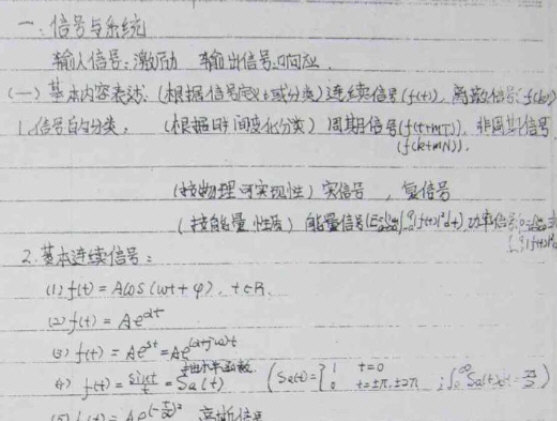 一、信号与系统
输入信号：激励 输出信号：响应
(一) 基本内容表达：(根据信号定义域分类) 连续信号(f(t))，离散信号：f(k)
1.信号的分类。 (根据时间变化分类) 周期信号(f(t+mT))，非周期信号
(f(k+mN))．
(按物理可实现性) 实信号 ，复信号
(按能量性质) 能量信号 |f(t)|²dt) 功率信号
|f(t)|²d
2.基本连续信号：
(1) f(t) = Acos(ωt + φ)，t∈R．
(2) f(t) = Ae^{αt}
(3) f(t) = Ae^{st} = Ae^{(α+jω)t}
抽样函数
(4) f(t) = sint/t = Sa(t) (Sa(t) = { 1 t=0
0 t=±π，±2π ；∫₀^∞ Sa(t)dt = π/2)
(5) f(t) = Ae^{(-t/τ)²} 高斯信号